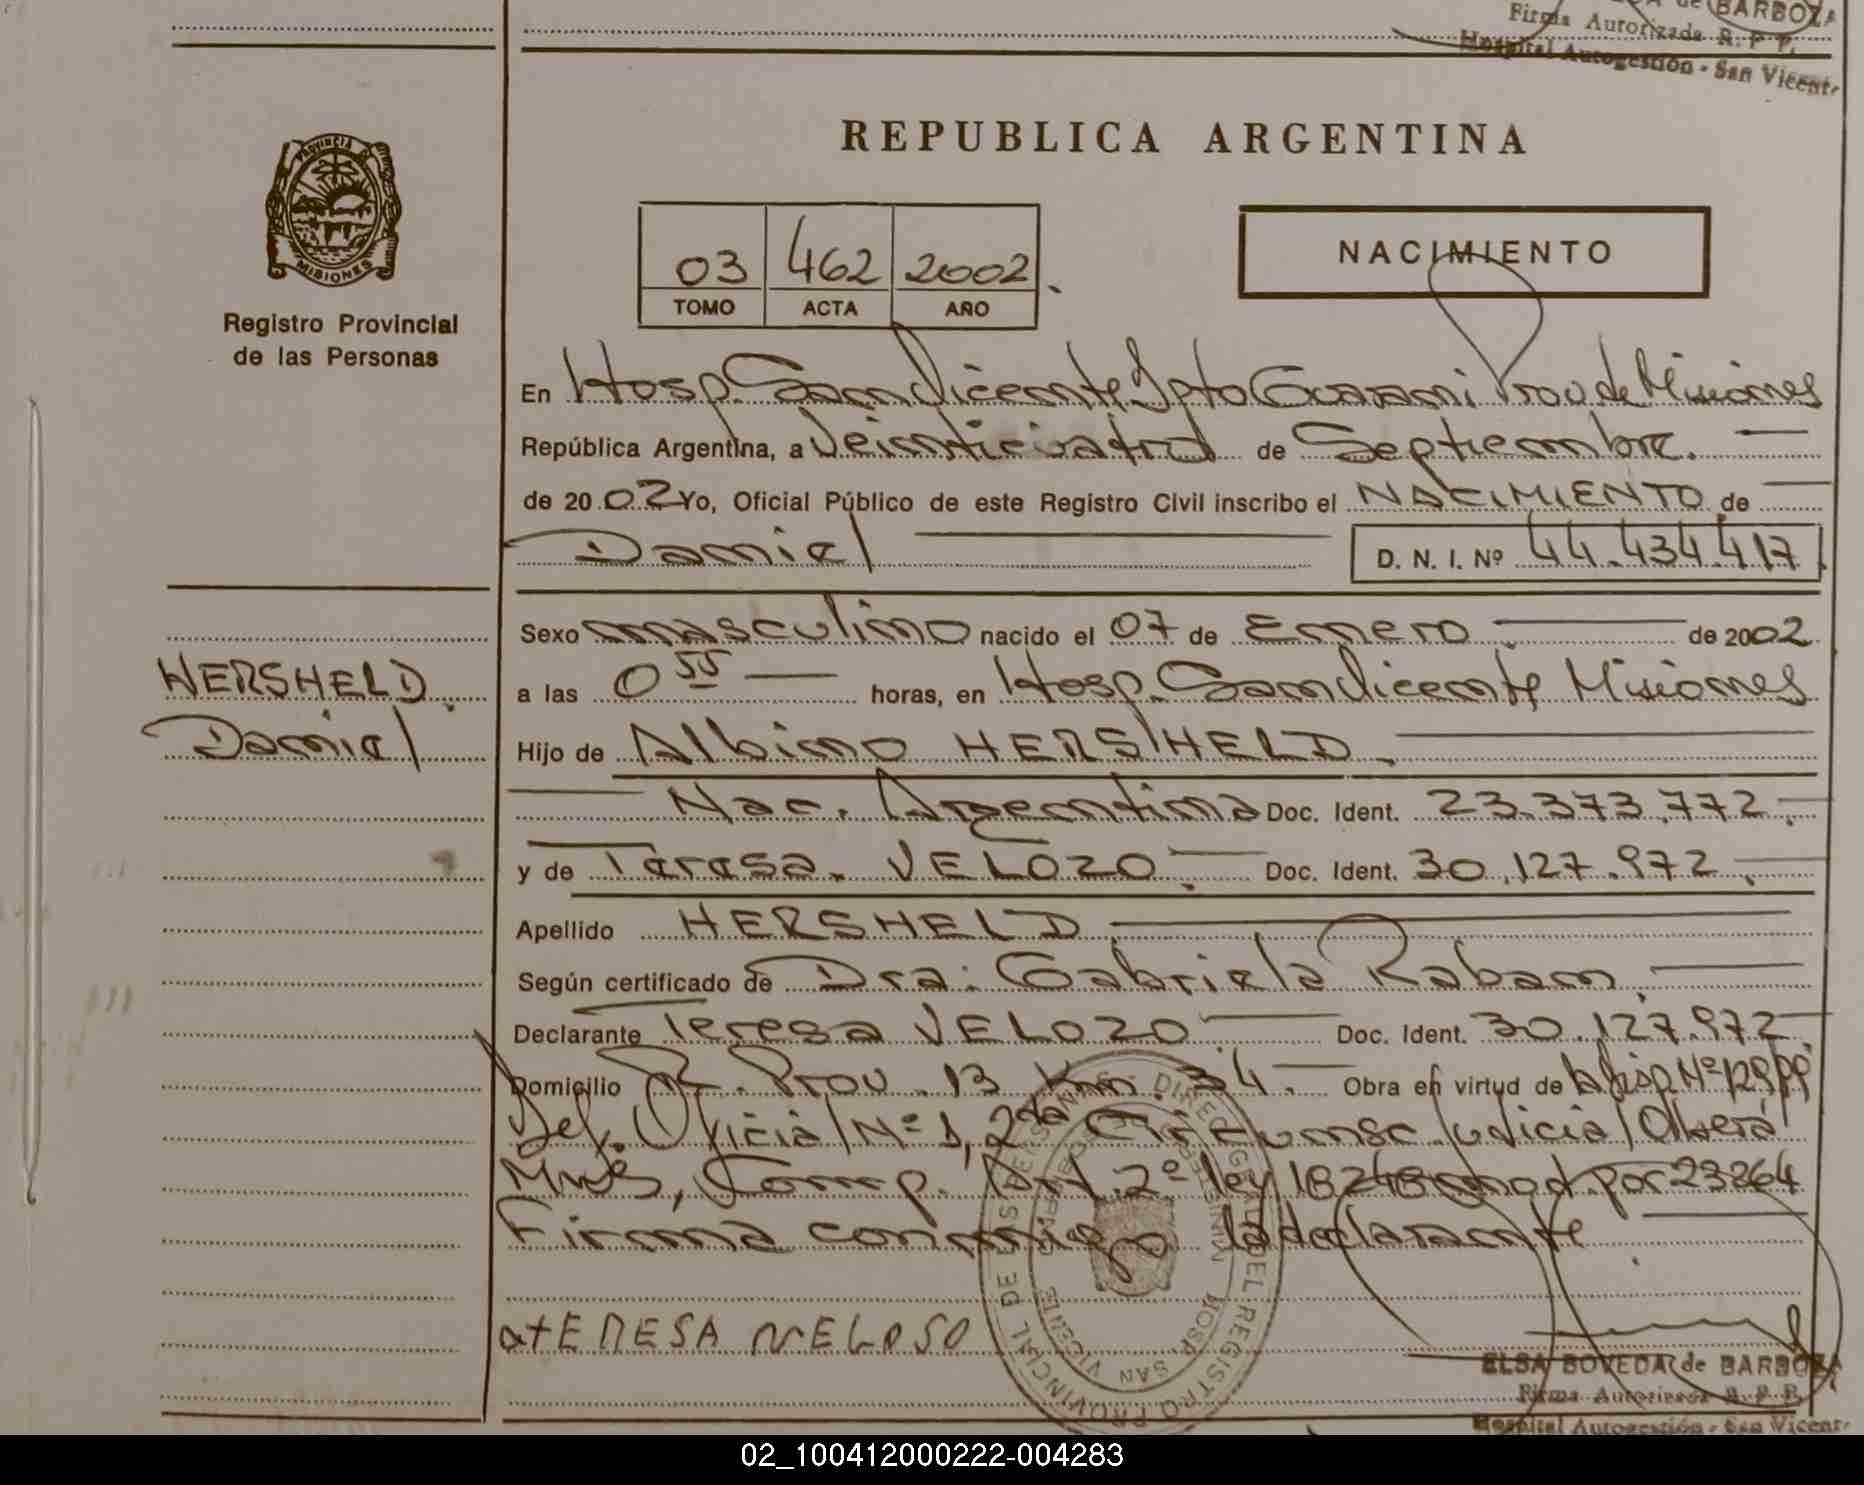 de BARBOZA
Firma Autorizada R. P. P.
Hospital Autogestión - San Vicente
PROVINCIA DE
MISIONES
Registro Provincial
de las Personas
REPUBLICA ARGENTINA
03 462 2002
TOMO ACTA AÑO
NACIMIENTO
En Hosp. San Vicente Dpto Guarani Prov. de Misiones
República Argentina, a Veinticuatro de Septiembre.
de 2002 Yo, Oficial Público de este Registro Civil inscribo el NACIMIENTO de
Daniel D. N. I. Nº 44.434.417
Sexo masculino nacido el 07 de Enero de 2002
a las 0 55 horas, en Hosp. San Vicente Misiones
HERSHELD
Daniel
Hijo de Albino HERSHELD
Nac. Argentina Doc. Ident. 23.373.772
y de Teresa VELOZO Doc. Ident. 30.127.972
Apellido HERSHELD
Según certificado de Dra. Gabriela Raban
Declarante Teresa VELOZO Doc. Ident. 30.127.972
Domicilio R. Prov. 13 Km. 34. Obra en virtud de la Disp. Nº
Def. Oficial Nº 1, 2da Circunsc. Judicial Oberá
Mnes, Comp. Art. 2º ley 18248 mod. por 23264
Firma conmigo la declarante
atERESA VELOSO
DIREC. GENERAL DEL REGISTRO PROVINCIAL DE LAS PERSONAS
HOSP. SAN VICENTE
ELSA BOVEDA de BARBOZA
Firma Autorizada R. P. P.
Hospital Autogestión - San Vicente
02_100412000222-004283